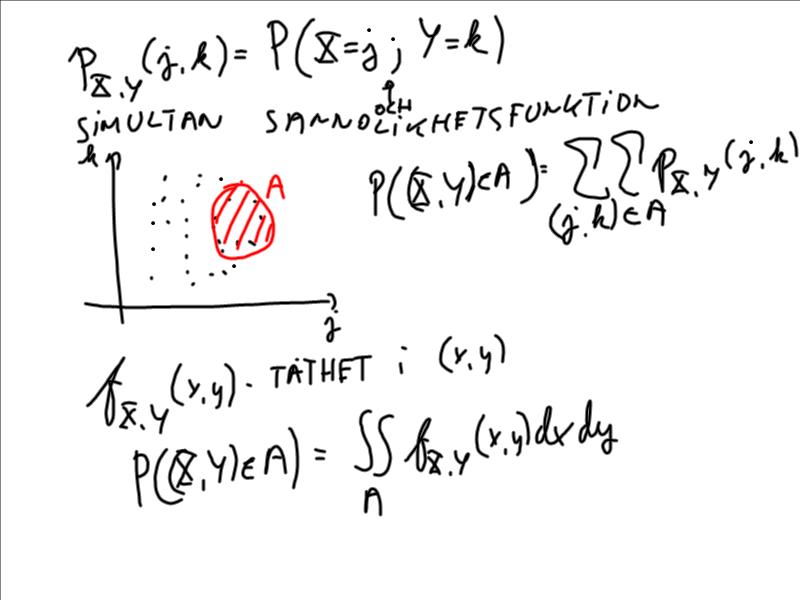 p_X,Y(j,k) = P(X=j; Y=k)
OCH
SIMULTAN SANNOLIKHETSFUNKTION
k
A
P((X,Y)∈A) = ΣΣ p_X,Y(j,k)
(j,k)∈A
j
f_X,Y(x,y). TÄTHET i (x,y)
P((X,Y)∈A) = ∬ f_X,Y(x,y)dxdy
A